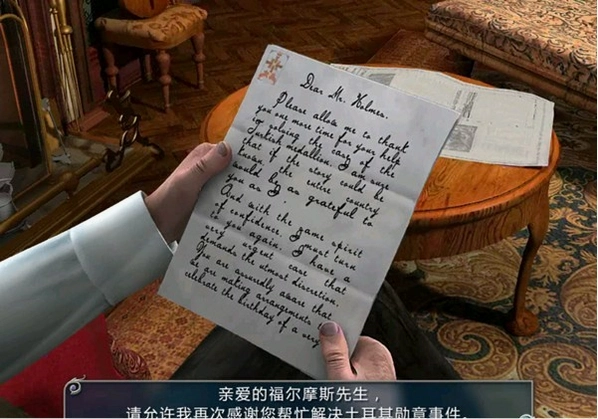 Dear Mr. Holmes,
Please allow me to thank
you one more time for your help
by solving the case of the
Turkish medallion. I am sure
that if the story could be
known, the entire country
would be as grateful to
you as I.
And with the same spirit
of confidence, I must turn
to you again. I have a
very urgent case that
demands the utmost discretion.
You are assuredly aware that
we are making arrangements to
celebrate the birthday of a very
亲爱的福尔摩斯先生，
请允许我再次感谢您帮忙解决土耳其勋章事件。